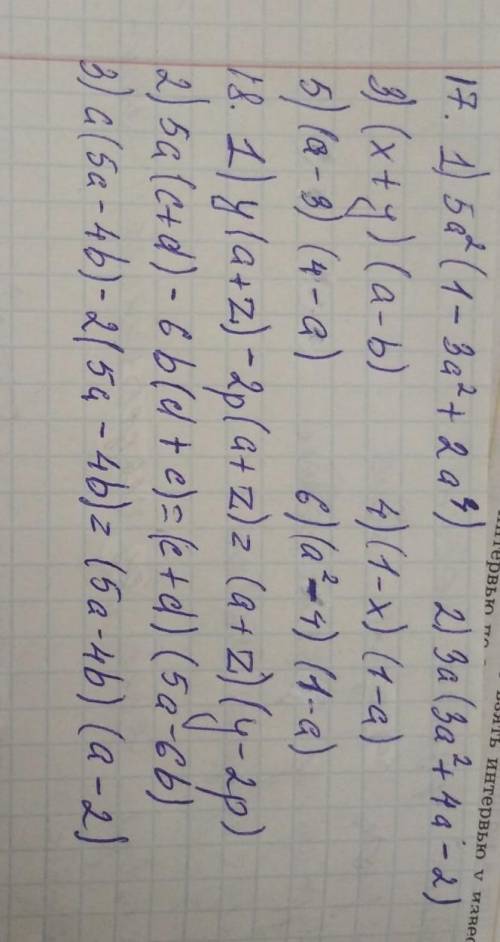 17. 1) 5a²(1 - 3a² + 2a³) 2) 3a(3a² + 4a - 2)
3) (x + y)(a - b) 4) (1 - x)(1 - a)
5) (a - 3)(4 - a) 6) (a² - 4)(1 - a)
18. 1) y(a + z) - 2p(a + z) = (a + z)(y - 2p)
2) 5a(c + d) - 6b(d + c) = (c + d)(5a - 6b)
3) a(5a - 4b) - 2(5a - 4b) = (5a - 4b)(a - 2)
интервью у